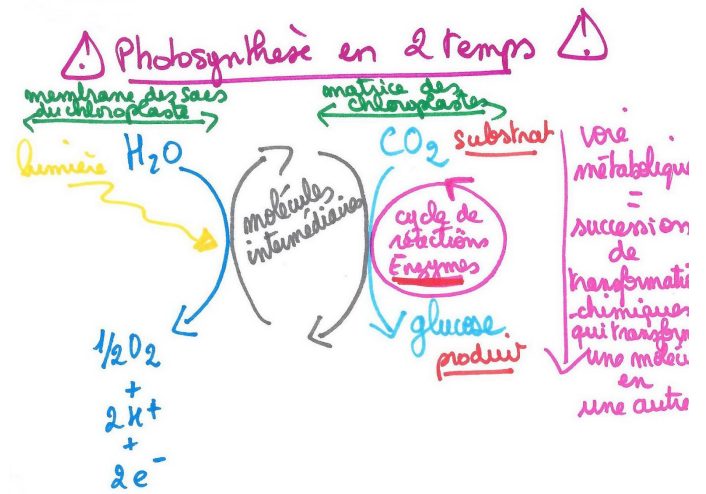 Photosynthèse en 2 temps
membrane des sacs
du chloroplaste
matrice des
chloroplastes
lumière
H2O
molécules
intermédiaires
CO2
substrat
cycle de
réactions
Enzymes
glucose
produit
1/2O2
+
2H+
+
2e-
voie
métabolique
=
succession
de
transformati
chimiques
qui transfor
une moléc
en
une autre